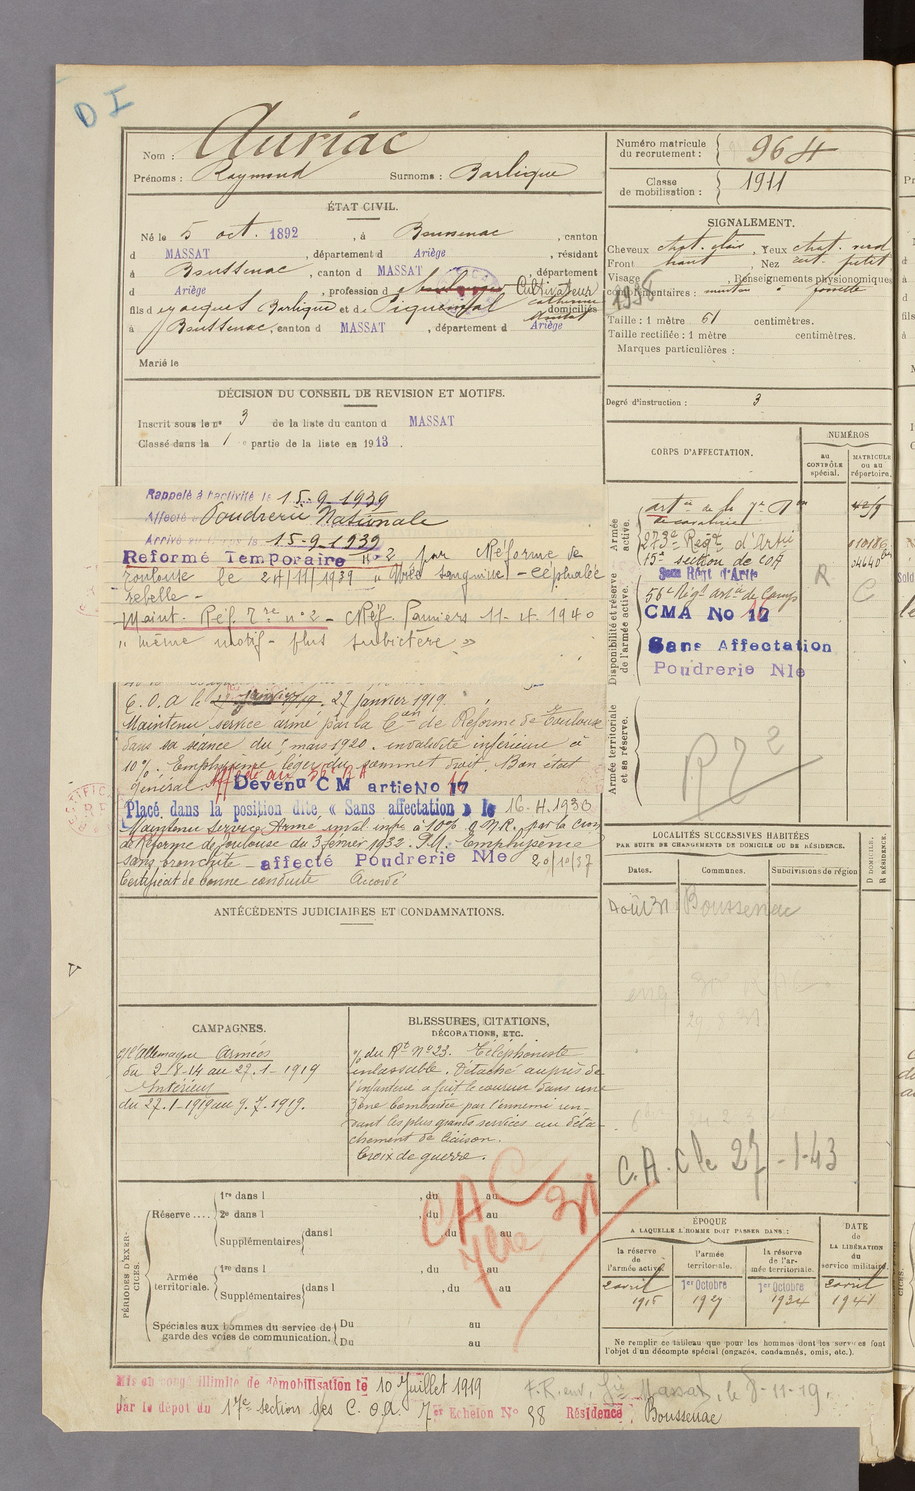 D I
Nom : Auriac
Prénoms : Raymond Surnoms : Barlique
Numéro matricule du recrutement : 964
Classe de mobilisation : 1911
ÉTAT CIVIL.
Né le 5 oct. 1892, à Boussenac, canton
d MASSAT, département d Ariège, résidant
à Boussenac, canton d MASSAT, département
d Ariège, profession d Cultivateur
fils d Jacques Barlique et d Piquemal Catherine domiciliés
à Boussenac, canton d MASSAT, département d Ariège
Marié le
SIGNALEMENT.
Cheveux chat. clair, Yeux chat. verd
Front haut, Nez petit
Visage , Renseignements physionomiques
complémentaires : menton à fossette
1936
Taille : 1 mètre 61 centimètres.
Taille rectifiée : 1 mètre centimètres.
Marques particulières :
Degré d'instruction : 3
DÉCISION DU CONSEIL DE REVISION ET MOTIFS.
Inscrit sous le n° 3 de la liste du canton d MASSAT
Classé dans la 1 e partie de la liste en 1913.
Rappelé à l'activité le 15-9-1939
Affecté Poudrerie Nationale
Arrivé 15-9-1939
Reformé Temporaire n° 2 par Réforme de
Toulouse le 24/11/1939 - céphalée
rebelle -
Maint. Réf. 7re n° 2 - Réf. Pamiers 11-4-1940
" même motif -
C.O.A le 27 janvier 1919.
Maintenu service armé par la Con de Réforme de Toulouse
dans sa séance du 5 mars 1920. invalidité inférieure à
10%. Emphysème léger du sommet droit. Bon état
général. Affecté au 56e RA
Devenu C M artie No 17 16
Placé dans la position dite « Sans affectation » le 16-4-1930
Maintenu Service Armé inval. infre à 10% NR. par la Con
de Réforme de Toulouse du 3 février 1932. P.M. Emphysème
sans bronchite - affecté Poudrerie Nle 20/10/37
Certificat de bonne conduite Accordé
CORPS D'AFFECTATION.
NUMÉROS
AU CONTRÔLE spécial.
MATRICULE OU AU répertoire.
Armée active.
273e Regt d'Artie
15e section de COA
Disponibilité et réserve de l'armée active.
56e Régt arte de Camp
CMA No 17
Sans Affectation
Poudrerie Nle
R
C
Armée territoriale et sa réserve.
R 7 2
ANTÉCÉDENTS JUDICIAIRES ET CONDAMNATIONS.
LOCALITÉS SUCCESSIVES HABITÉES
PAR SUITE DE CHANGEMENTS DE DOMICILE OU DE RÉSIDENCE.
Dates. Communes. Subdivisions de région D DOMICILE. R RÉSIDENCE.
Août 31 Boussenac
C.A.C le 27-1-43
CAMPAGNES.
c/ l'Allemagne Armées
du 2-8-14 au 27-1-1919
Intérieur
du 27-1-1919 au 9.7.1919.
BLESSURES, CITATIONS,
DÉCORATIONS, ETC.
% du Rt N° 23. Téléphoniste
inlassable. Détaché auprès de
l'infanterie a fait le coureur dans une
zone bombardée par l'ennemi ren-
dant les plus grands services au déta-
chement de liaison.
Croix de guerre.
CAC
PÉRIODES D'EXERCICES.
Réserve.... 1re dans l , du au
2e dans l , du au
Supplémentaires dans l du au
Armée territoriale. 1re dans l , du au
Supplémentaires dans l , du au
Spéciales aux hommes du service de garde des voies de communication. Du au
Du au
ÉPOQUE
A LAQUELLE L'HOMME DOIT PASSER DANS :
la réserve de l'armée active. l'armée territoriale. la réserve de l'armée territoriale.
DATE de LA LIBÉRATION du service militaire.
2 avril 1916 1er Octobre 1927 1er Octobre 1934 2 avril 1941
Ne remplir ce tableau que pour les hommes dont les services font
l'objet d'un décompte spécial (engagés, condamnés, omis, etc.).
Mis en congé illimité de démobilisation le 10 Juillet 1919
par le dépôt du 17e section des C.O.A. 7er Echelon N° 98 Résidence : Boussenac
F.R. env. Massat, le 8-11-19.